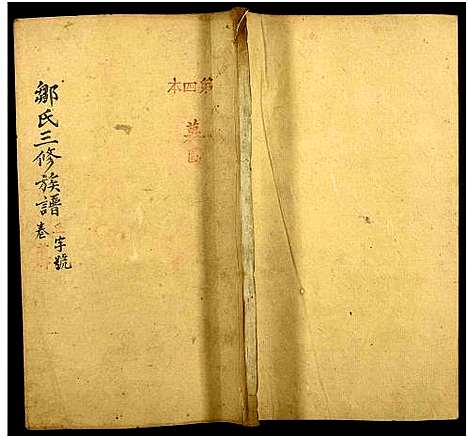 鄒氏三修族譜
卷
字號
本四第